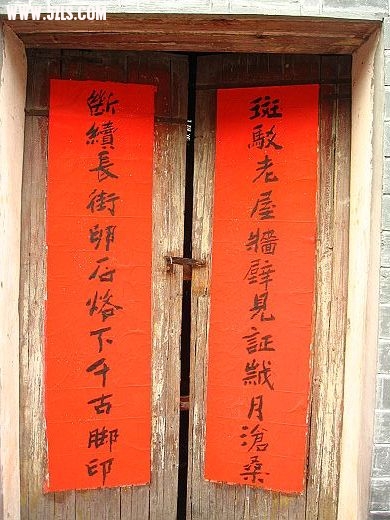 斑駁老屋牆壁見証歲月滄桑
斷續長街卵石烙下千古脚印